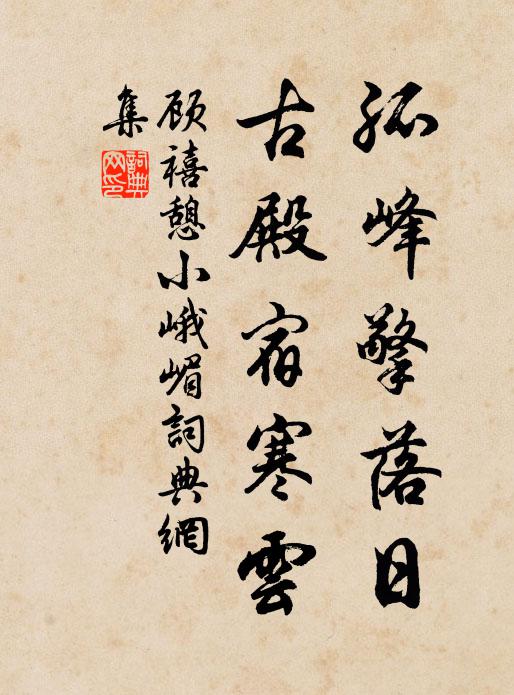 孤峰擎落日
古殿宿寒雲
顾禧憩小峨嵋詞典網
集
詞典
网印